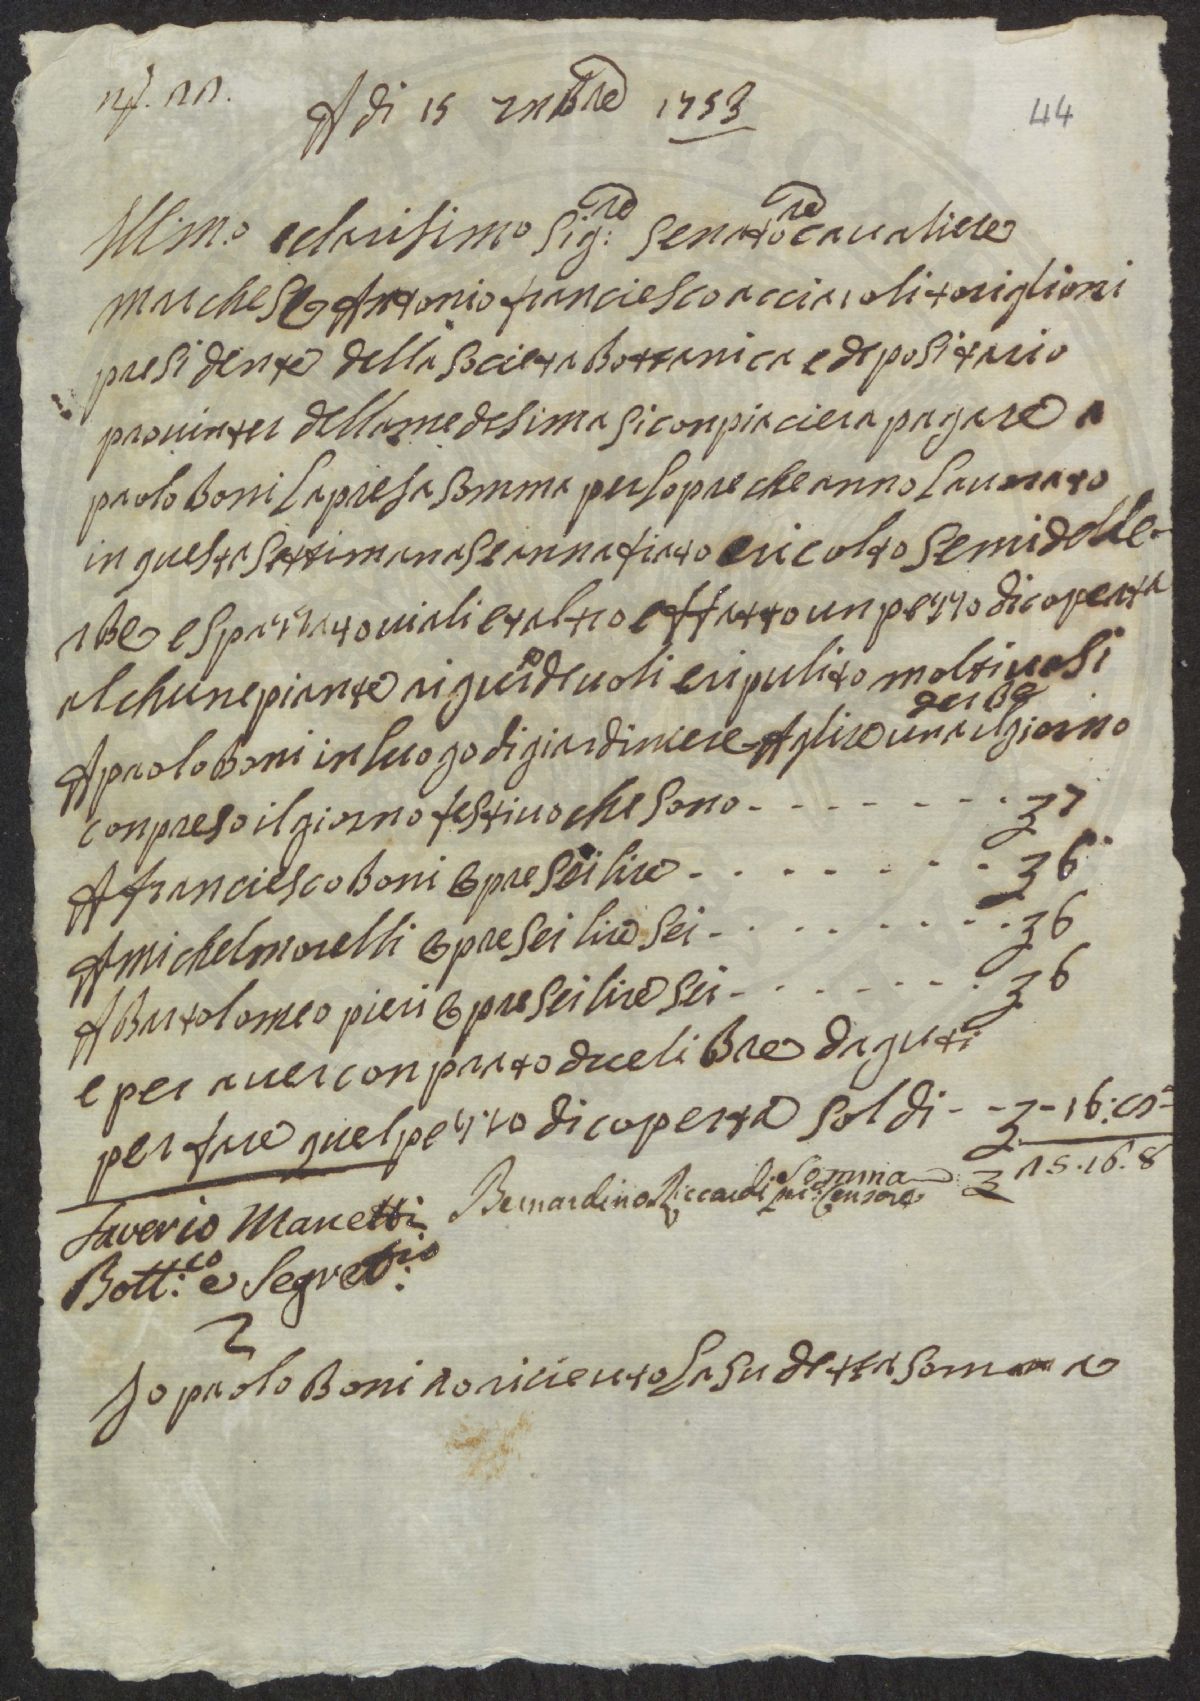 A di 15 7mbre 1753
44
Illmo e clarisimo Sig:re Senatore cavaliere
marchese Antonio franciesco acciaioli toriglioni
presidente della Societa Bottanica e depositario
pro inter della medesima si conpiaciera pagare a
paolo Boni la presa somma per lopre che anno lavorato
in questa settimana se annafiato e ricolto semi delle
rbe e spazzato viali et altro e ffatto un pezzo di coperta
alchune piante riguardevoli e ripulito molti vasi
der be
A paolo Boni in luogo di giardiniere A lire una il giorno
conpreso il giorno festivo che sono - - - - - - - £ 7
A franciesco Boni opre sei lire - - - - - - - £ 6
A michel morelli opre sei lire sei - - - - - - - £ 6
A Bartolomeo pieri opre sei lire sei - - - - - - - £ 6
e per aver conprato due libre daguti
per fare quel pezzo di coperta soldi - - £ - 16:
Somma £ 25.16.8
Saverio Manetti
Bott:co e Segret:rio
Bernardino Riccardi Censore
Io paolo Boni o ricieuto la su detta somma